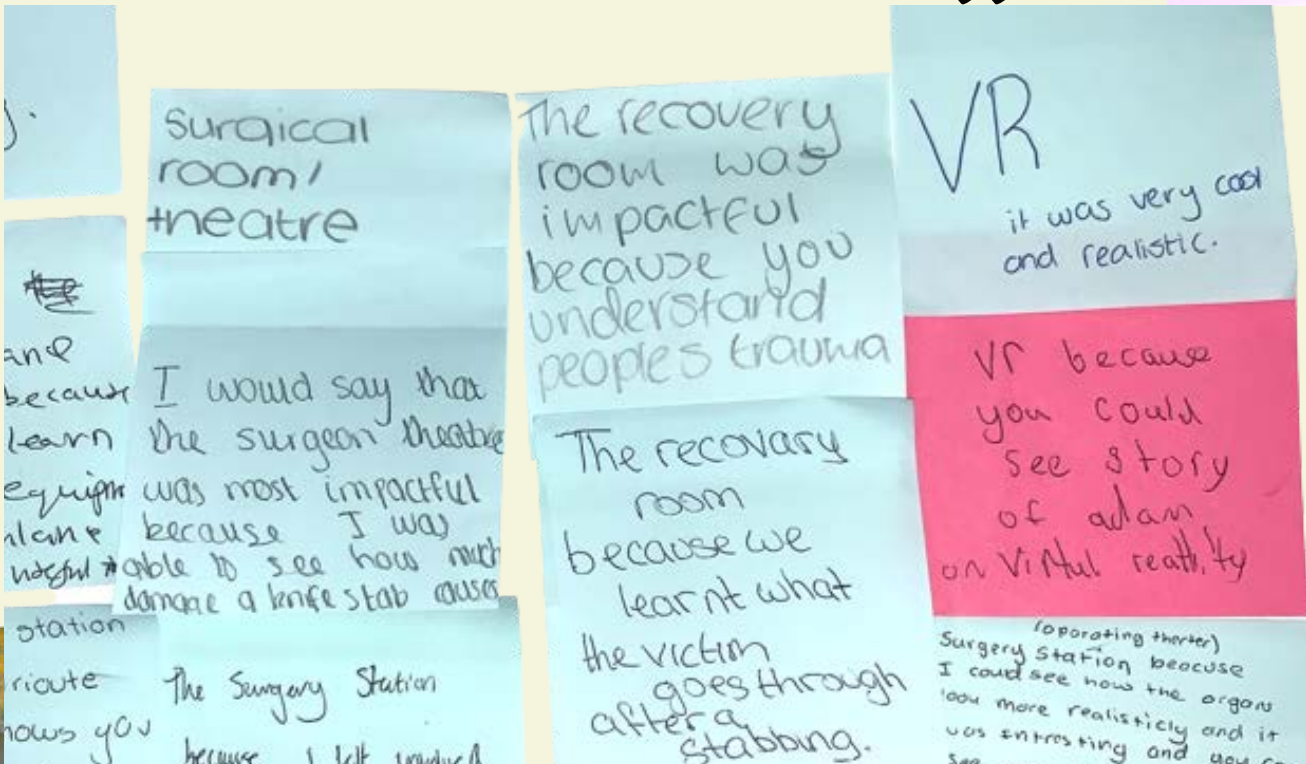 Surgical
room/
theatre
I would say that
the surgeon theatre
was most impactful
because I was
able to see how much
damage a knife stab causes
The Surgery Station
because I felt involved
The recovery
room was
impactful
because you
understand
peoples trauma
The recovary
room
because we
learnt what
the victim
goes through
after a
stabbing.
VR
it was very cool
and realistic.
Vr because
you could
see story
of adam
on Virtul reatlity
(oporating therter)
Surgery Station beacuse
I coud see how the organs
look more realisticly and it
was introsting and you
see
because
learn
station
nows you